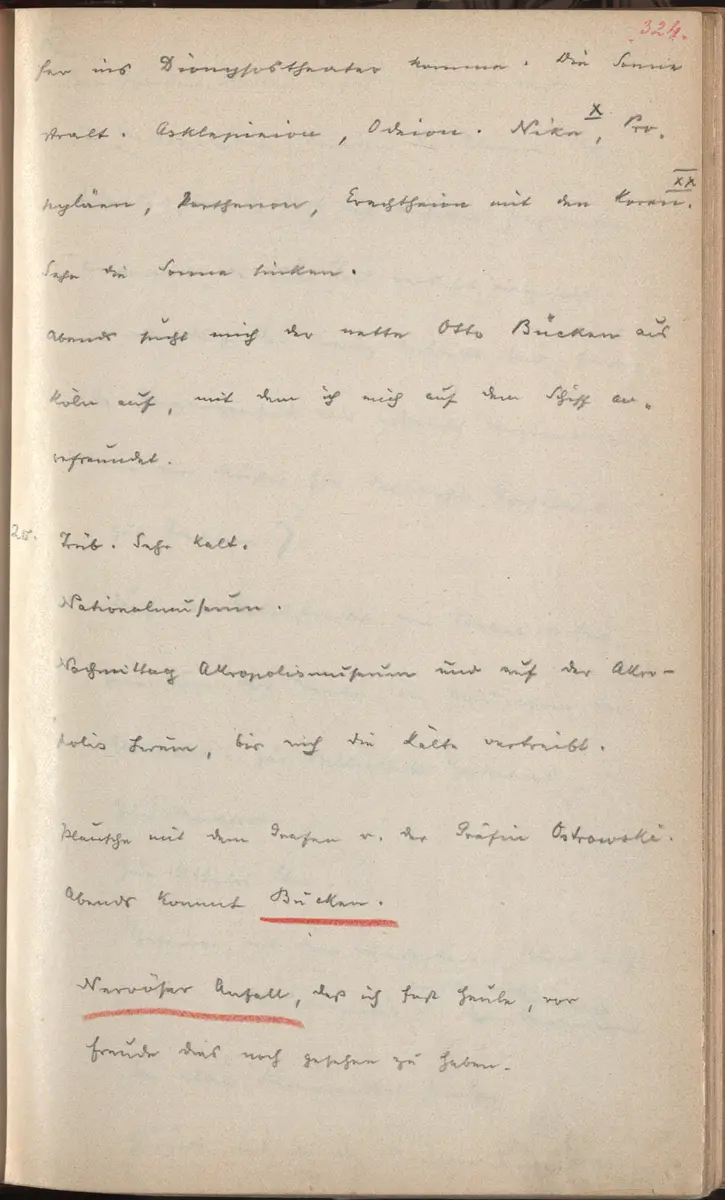 324.
her ins Dionysostheater komme. Die Sonne
stralt. Asklepieion, Odeion. Nike x, Pro-
pyläen, Parthenon, Erechtheion mit den Koren. xx
Sehe die Sonne sinken.
Abends sucht mich der nette Otto Bücken aus
Köln auf, mit dem ich mich auf dem Schiff an-
gefreundet.
25. Trüb. Sehr kalt.
Nationalmuseum.
Nachmittag Akropolismuseum und auf der Akro-
polis herum, bis mich die Kälte vertreibt.
Plausche mit dem Grafen u. der Gräfin Ostrowski.
Abends kommt Bücken.
Nervöser Anfall, daß ich fast heule, vor
Freude dies noch gesehen zu haben.